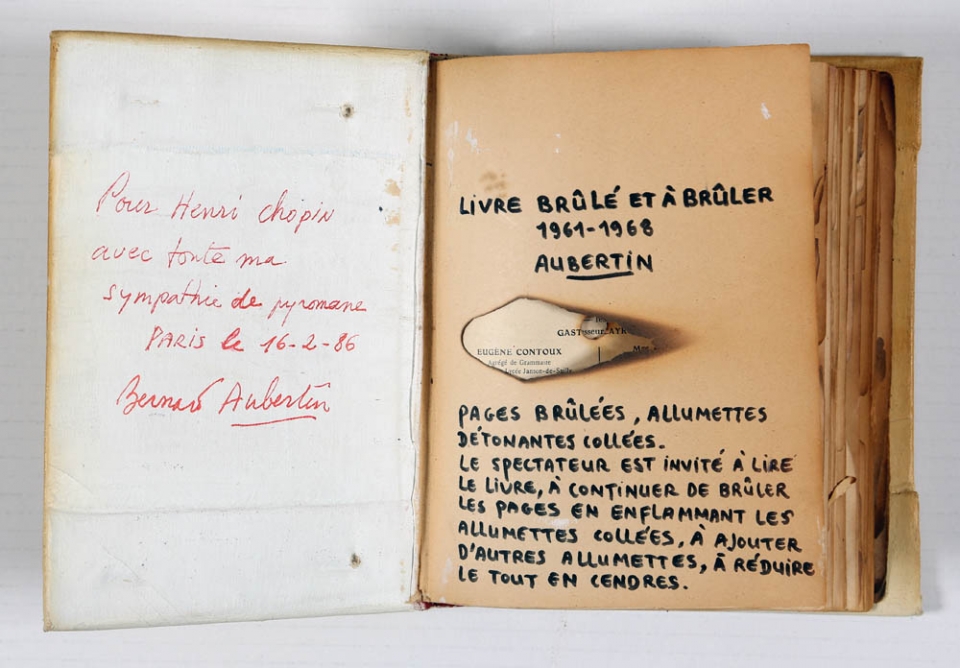 Pour Henri Chopin
avec toute ma
sympathie de pyromane
PARIS le 16-2-86
Bernard Aubertin
LIVRE BRÛLÉ ET À BRÛLER
1961-1968
AUBERTIN
GAST
EUGÈNE CONTOUX
Agrégé de Grammaire
PAGES BRÛLÉES, ALLUMETTES
DÉTONANTES COLLÉES.
LE SPECTATEUR EST INVITÉ À LIRE
LE LIVRE, À CONTINUER DE BRÛLER
LES PAGES EN ENFLAMMANT LES
ALLUMETTES COLLÉES, À AJOUTER
D'AUTRES ALLUMETTES, À RÉDUIRE
LE TOUT EN CENDRES.